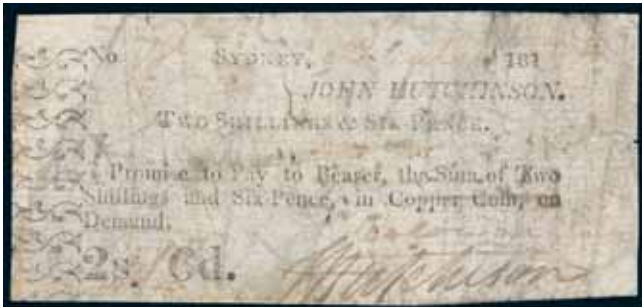 No SYDNEY, 181
JOHN HUTCHINSON.
TWO SHILLINGS & SIX PENCE.
I Promise to Pay to Bearer, the Sum of Two
Shillings and Six-Pence, in Copper Coin, on
Demand.
2s. 6d. J Hutchinson